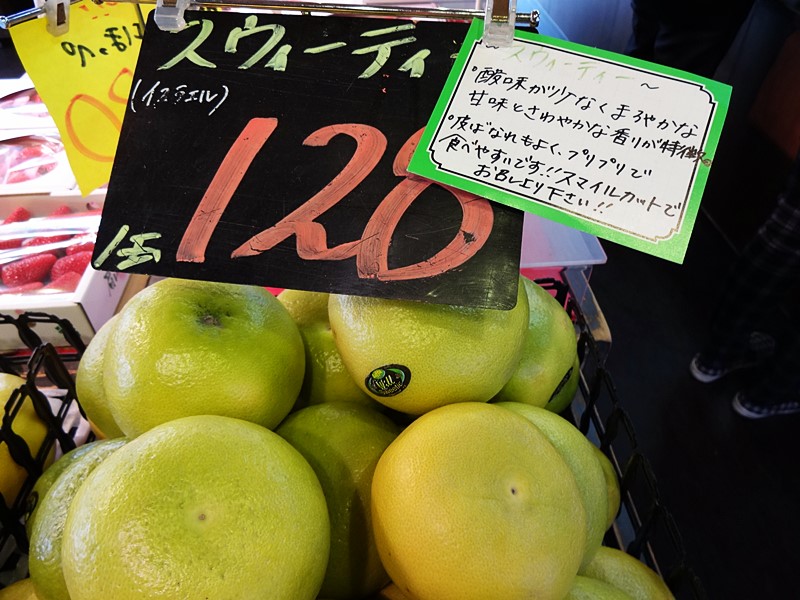 スウィーティー
(イスラエル)
128
1玉
～スウィーティー～
・酸味がツケなくまろやかな
甘味とさわやかな香りが特徴。
・皮ばなれもよく、プリプリで
食べやすいです!!スマイルカットで
お召し上り下さい!!